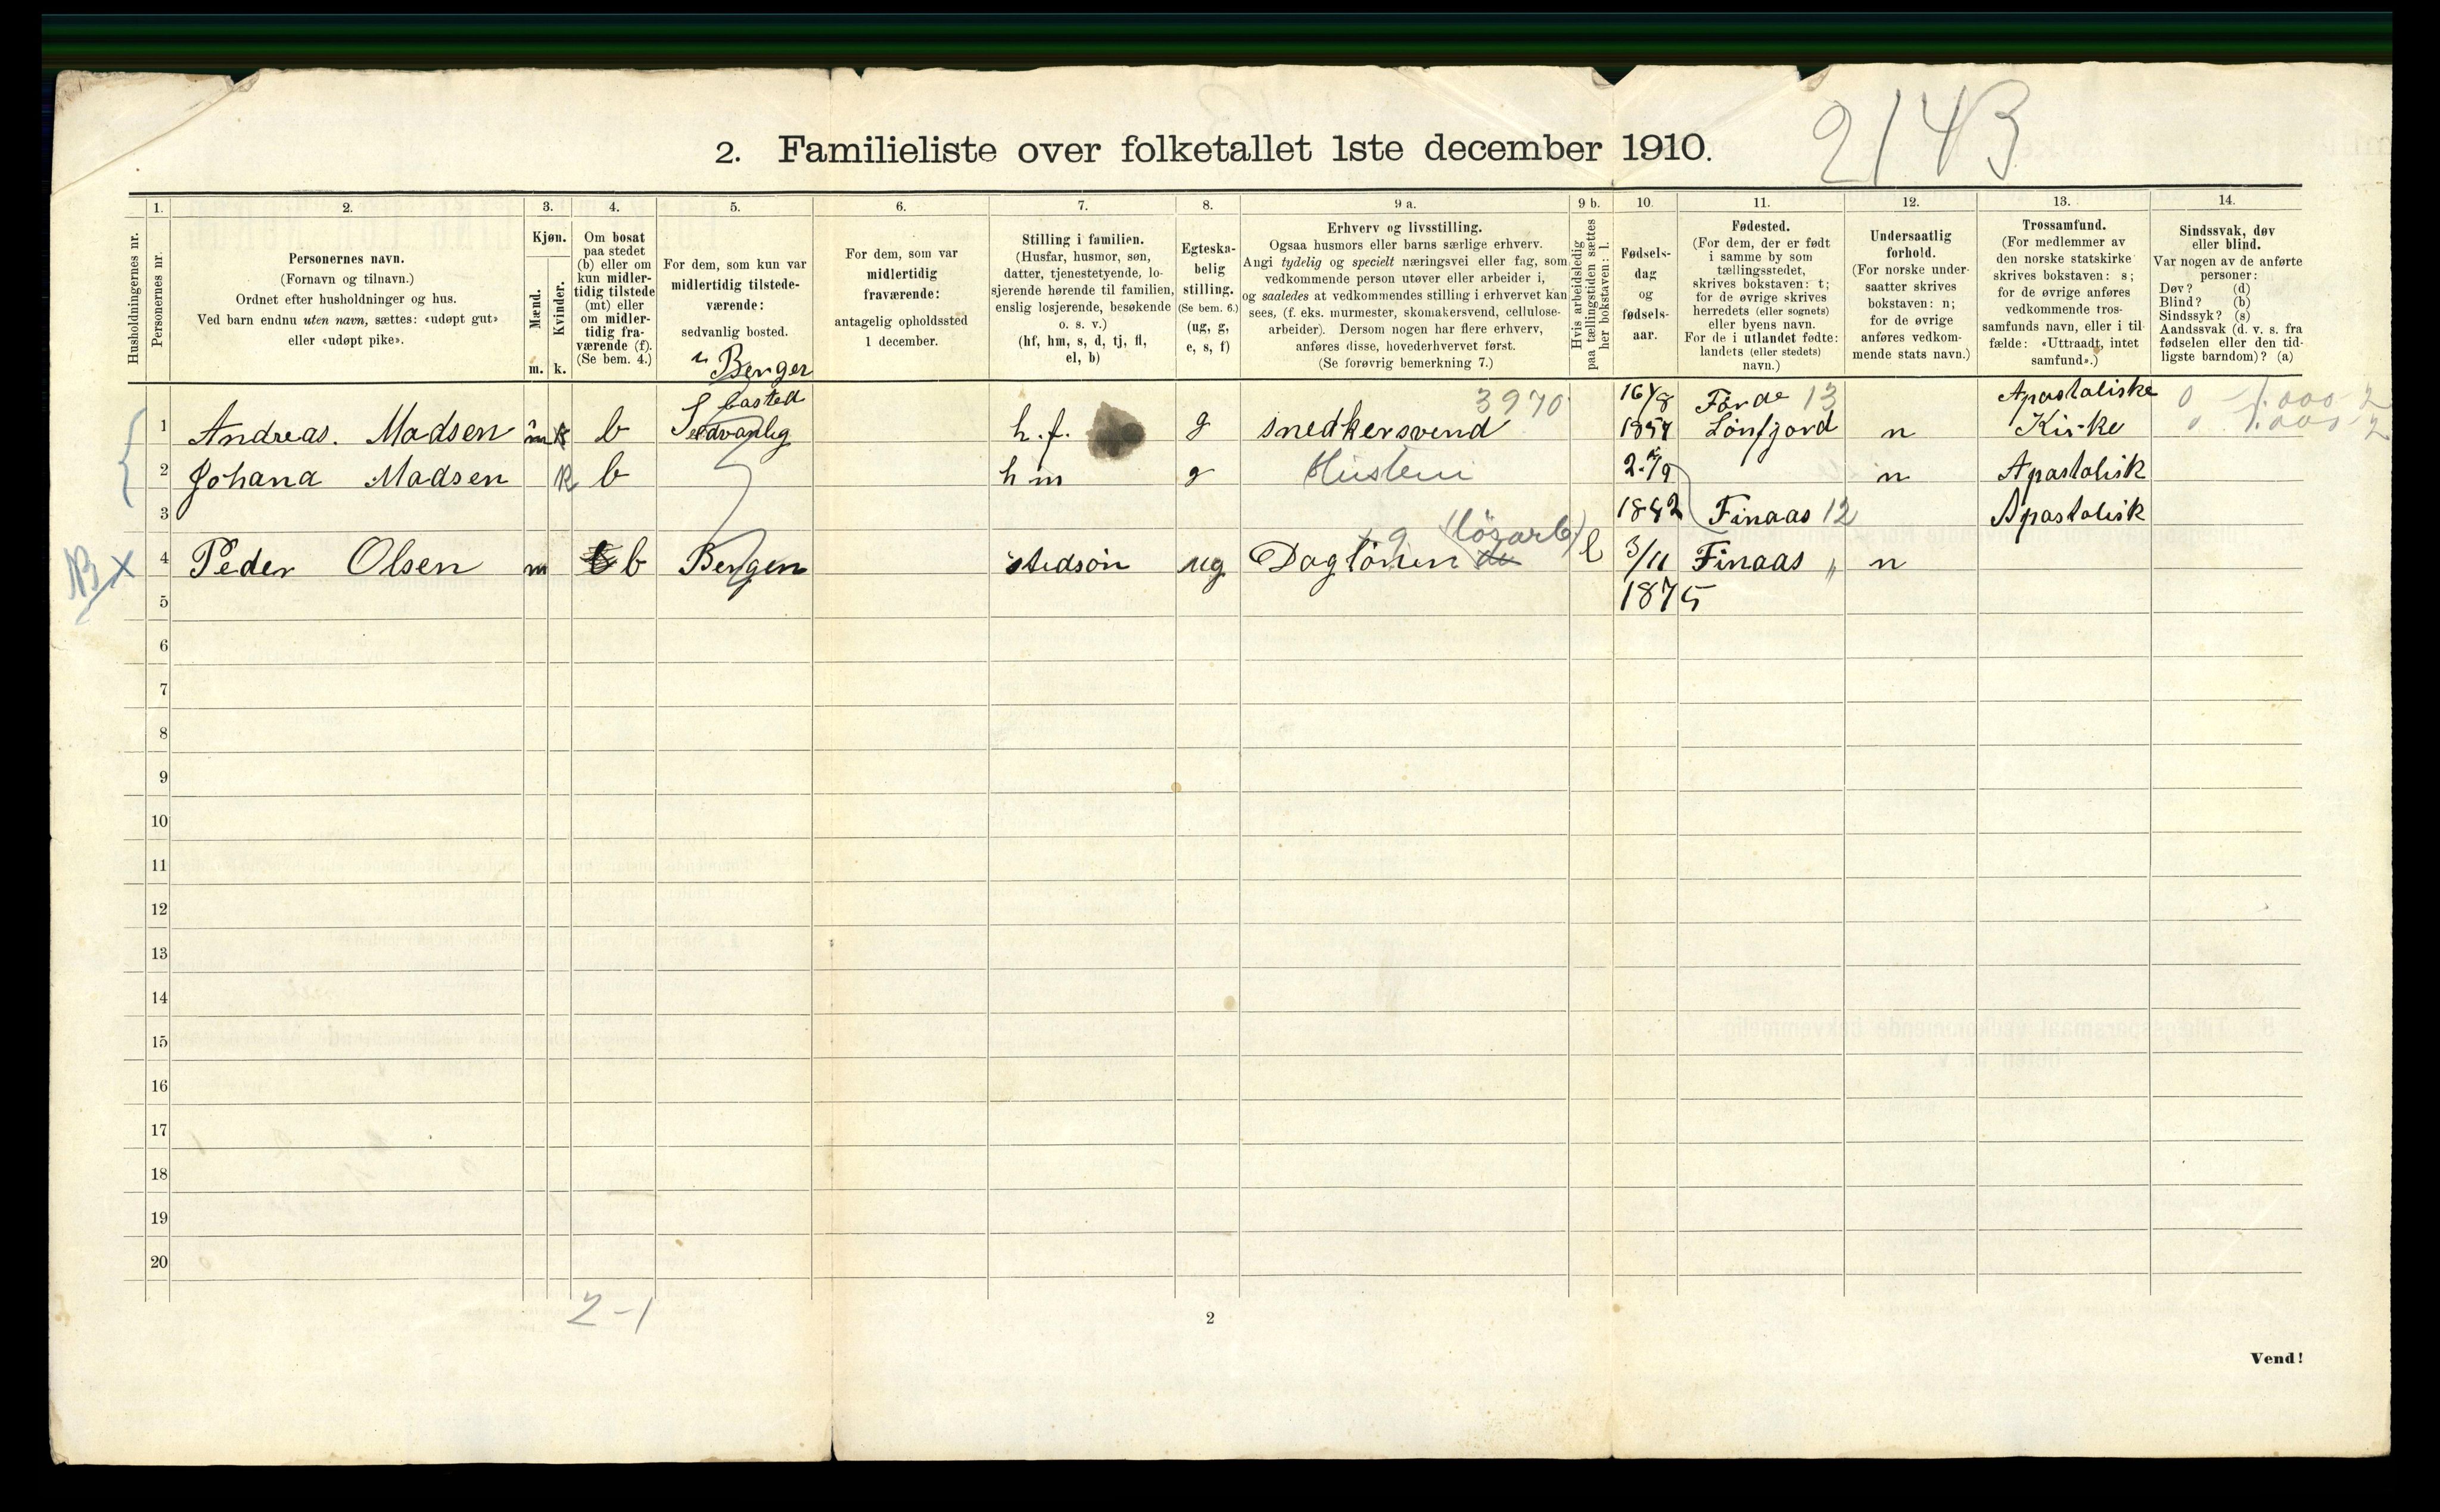 2143
2. Familieliste over folketallet 1ste december 1910.
Husholdningernes nr.
1.
Personernes nr.
2.
Personernes navn.
(Fornavn og tilnavn.)
Ordnet efter husholdninger og hus.
Ved barn endnu uten navn, sættes: «udøpt gut»
eller «udøpt pike».
3.
Kjøn.
Mænd.
Kvinder.
m. k.
4.
Om bosat
paa stedet
(b) eller om
kun midler-
tidig tilstede
(mt) eller
om midler-
tidig fra-
værende (f).
(Se bem. 4.)
5.
For dem, som kun var
midlertidig tilstede-
værende:
sedvanlig bosted.
6.
For dem, som var
midlertidig
fraværende:
antagelig opholdssted
1 december.
7.
Stilling i familien.
(Husfar, husmor, søn,
datter, tjenestetyende, lo-
sjerende hørende til familien,
enslig losjerende, besøkende
o. s. v.)
(hf, hm, s, d, tj, fl,
el, b)
8.
Egteska-
belig
stilling.
(Se bem. 6.)
(ug, g,
e, s, f)
9 a.
Erhverv og livsstilling.
Ogsaa husmors eller barns særlige erhverv.
Angi tydelig og specielt næringsvei eller fag, som
vedkommende person utøver eller arbeider i,
og saaledes at vedkommendes stilling i erhvervet kan
sees, (f. eks. murmester, skomakersvend, cellulose-
arbeider). Dersom nogen har flere erhverv,
anføres disse, hovederhvervet først.
(Se forøvrig bemerkning 7.)
9 b.
Hvis arbeidsledig
paa tællingstiden sættes
her bokstaven: l.
10.
Fødsels-
dag
og
fødsels-
aar.
11.
Fødested.
(For dem, der er født
i samme by som
tællingsstedet,
skrives bokstaven: t;
for de øvrige skrives
herredets (eller sognets)
eller byens navn.
For de i utlandet fødte:
landets (eller stedets)
navn.)
12.
Undersaatlig
forhold.
(For norske under-
saatter skrives
bokstaven: n;
for de øvrige
anføres vedkom-
mende stats navn.)
13.
Trossamfund.
(For medlemmer av
den norske statskirke
skrives bokstaven: s;
for de øvrige anføres
vedkommende tros-
samfunds navn, eller i til-
fælde: «Uttraadt, intet
samfund».)
14.
Sindssvak, døv
eller blind.
Var nogen av de anførte
personer:
Døv? (d)
Blind? (b)
Sindssyk? (s)
Aandssvak (d. v. s. fra
fødselen eller den tid-
ligste barndom)? (a)
Berger
bosted 3970 16/8 Førde 13 Apostoliske
1 Andreas. Madsen m b Sedvanlig h.f. g snedkersvend n Kirke
2 Johana Madsen k b h m g n Apastolisk
3 1842 Finaas 12 Apastolisk
(løsarb)
NB x 4 Peder Olsen m b Bergen stedsøn ug Dagløner l 3/11 Finaas „ n
5 1875
6
7
8
9
10
11
12
13
14
15
16
17
18
19
20
2-1
2
Vend!